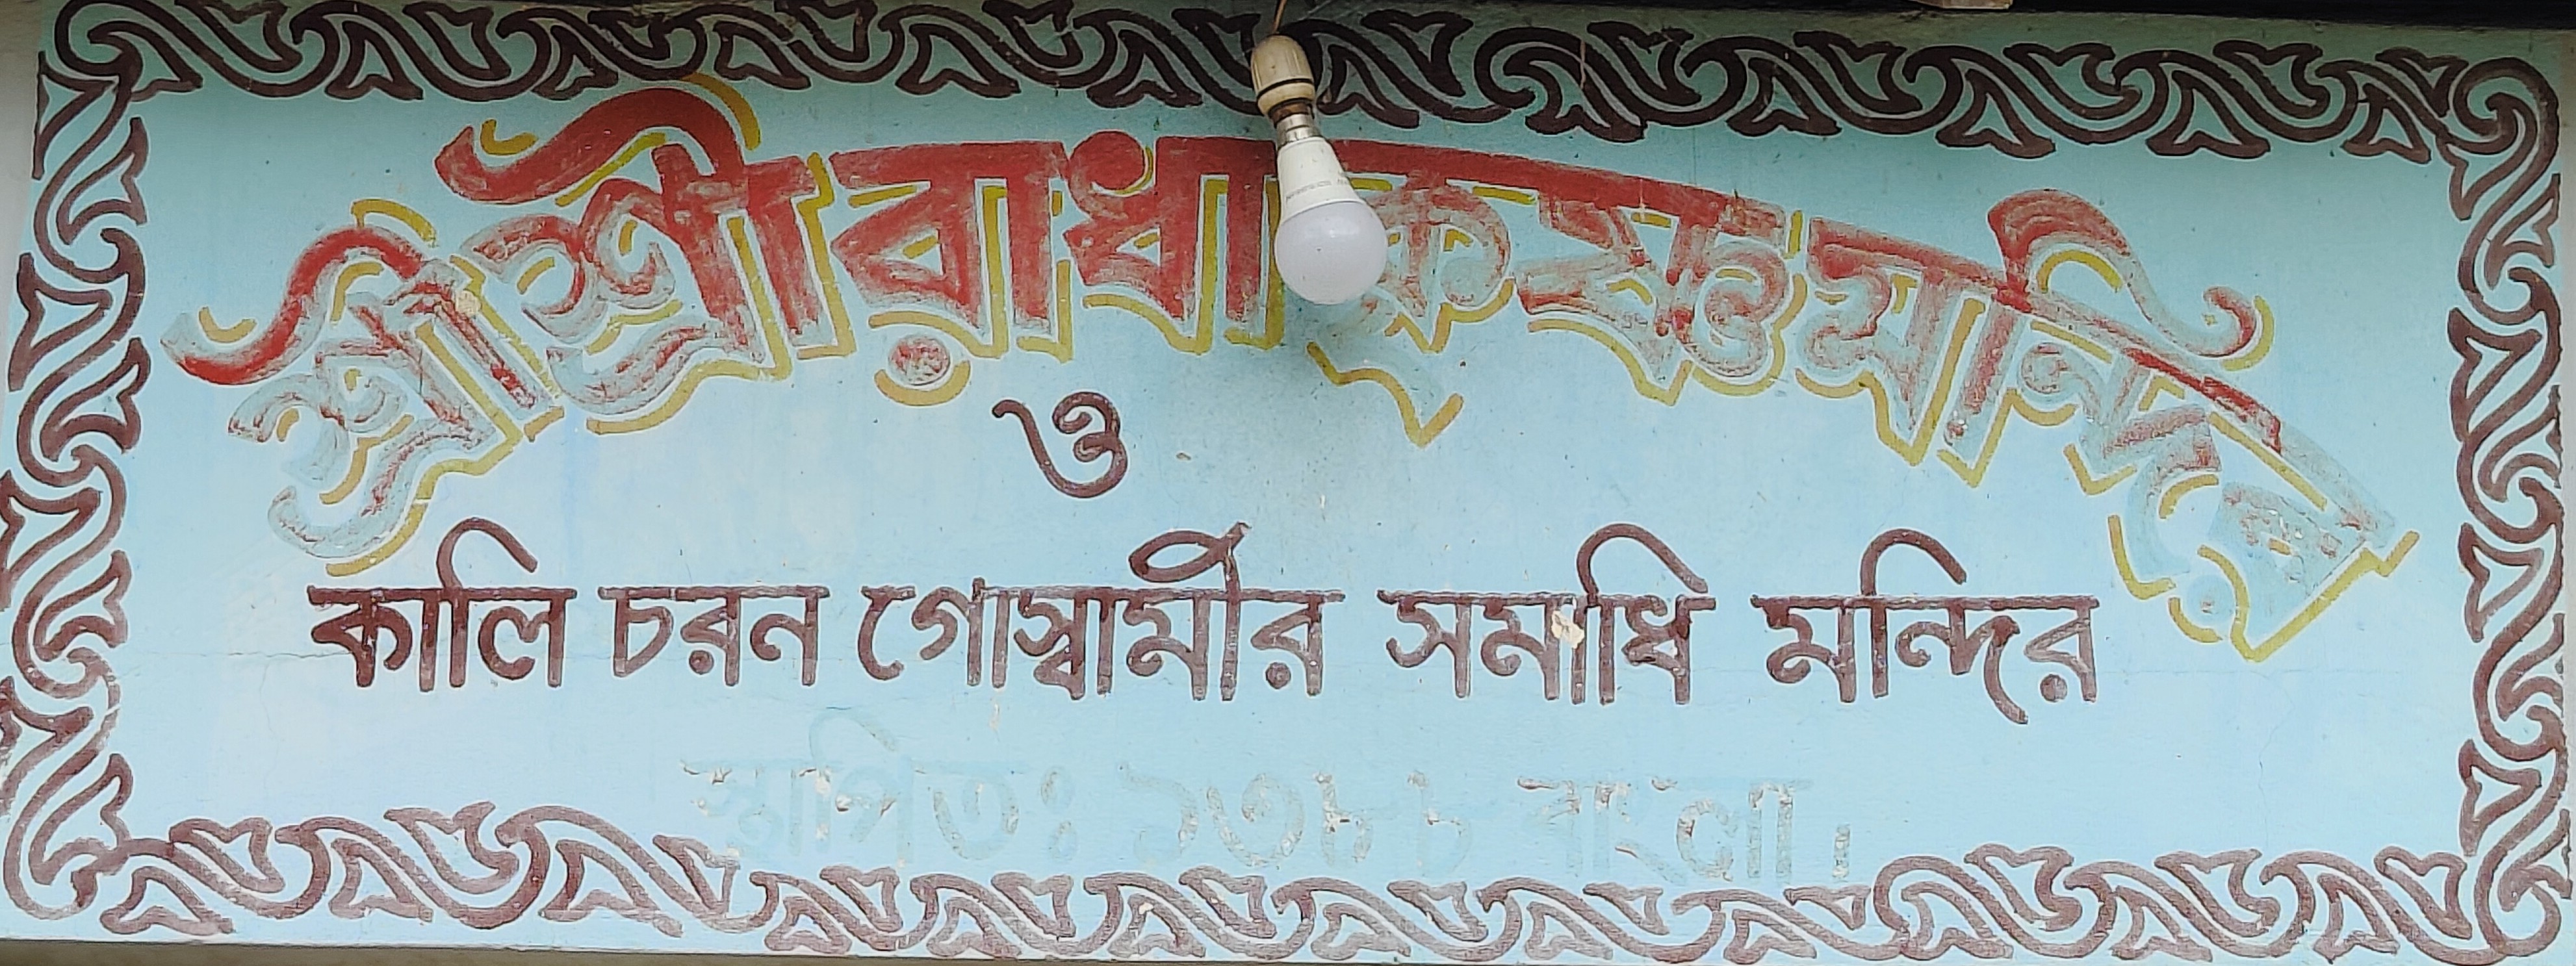 শ্রী শ্রী রাধা কৃষ্ণ মন্দির
ও
কালি চরন গোস্বামীর সমাধি মন্দির
স্থাপিতঃ ১৩৮৮ বাংলা।